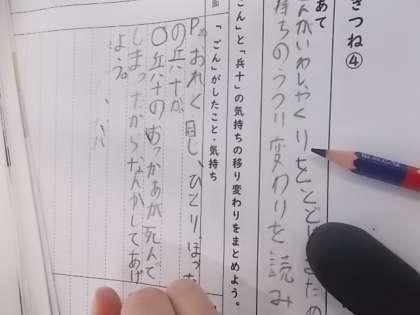 きつね④
あて
んがいわしやくりをとど
持ちのうつり変わりを読み
ごん」と「兵十」の気持ちの移り変わりをまとめよう。
面 「ごん」がしたこと・気持ち
おれと同じ、ひとりぼっち
の兵十か。
○兵十のおっかあが死んで
しまったからなんかしてあげ
よう。